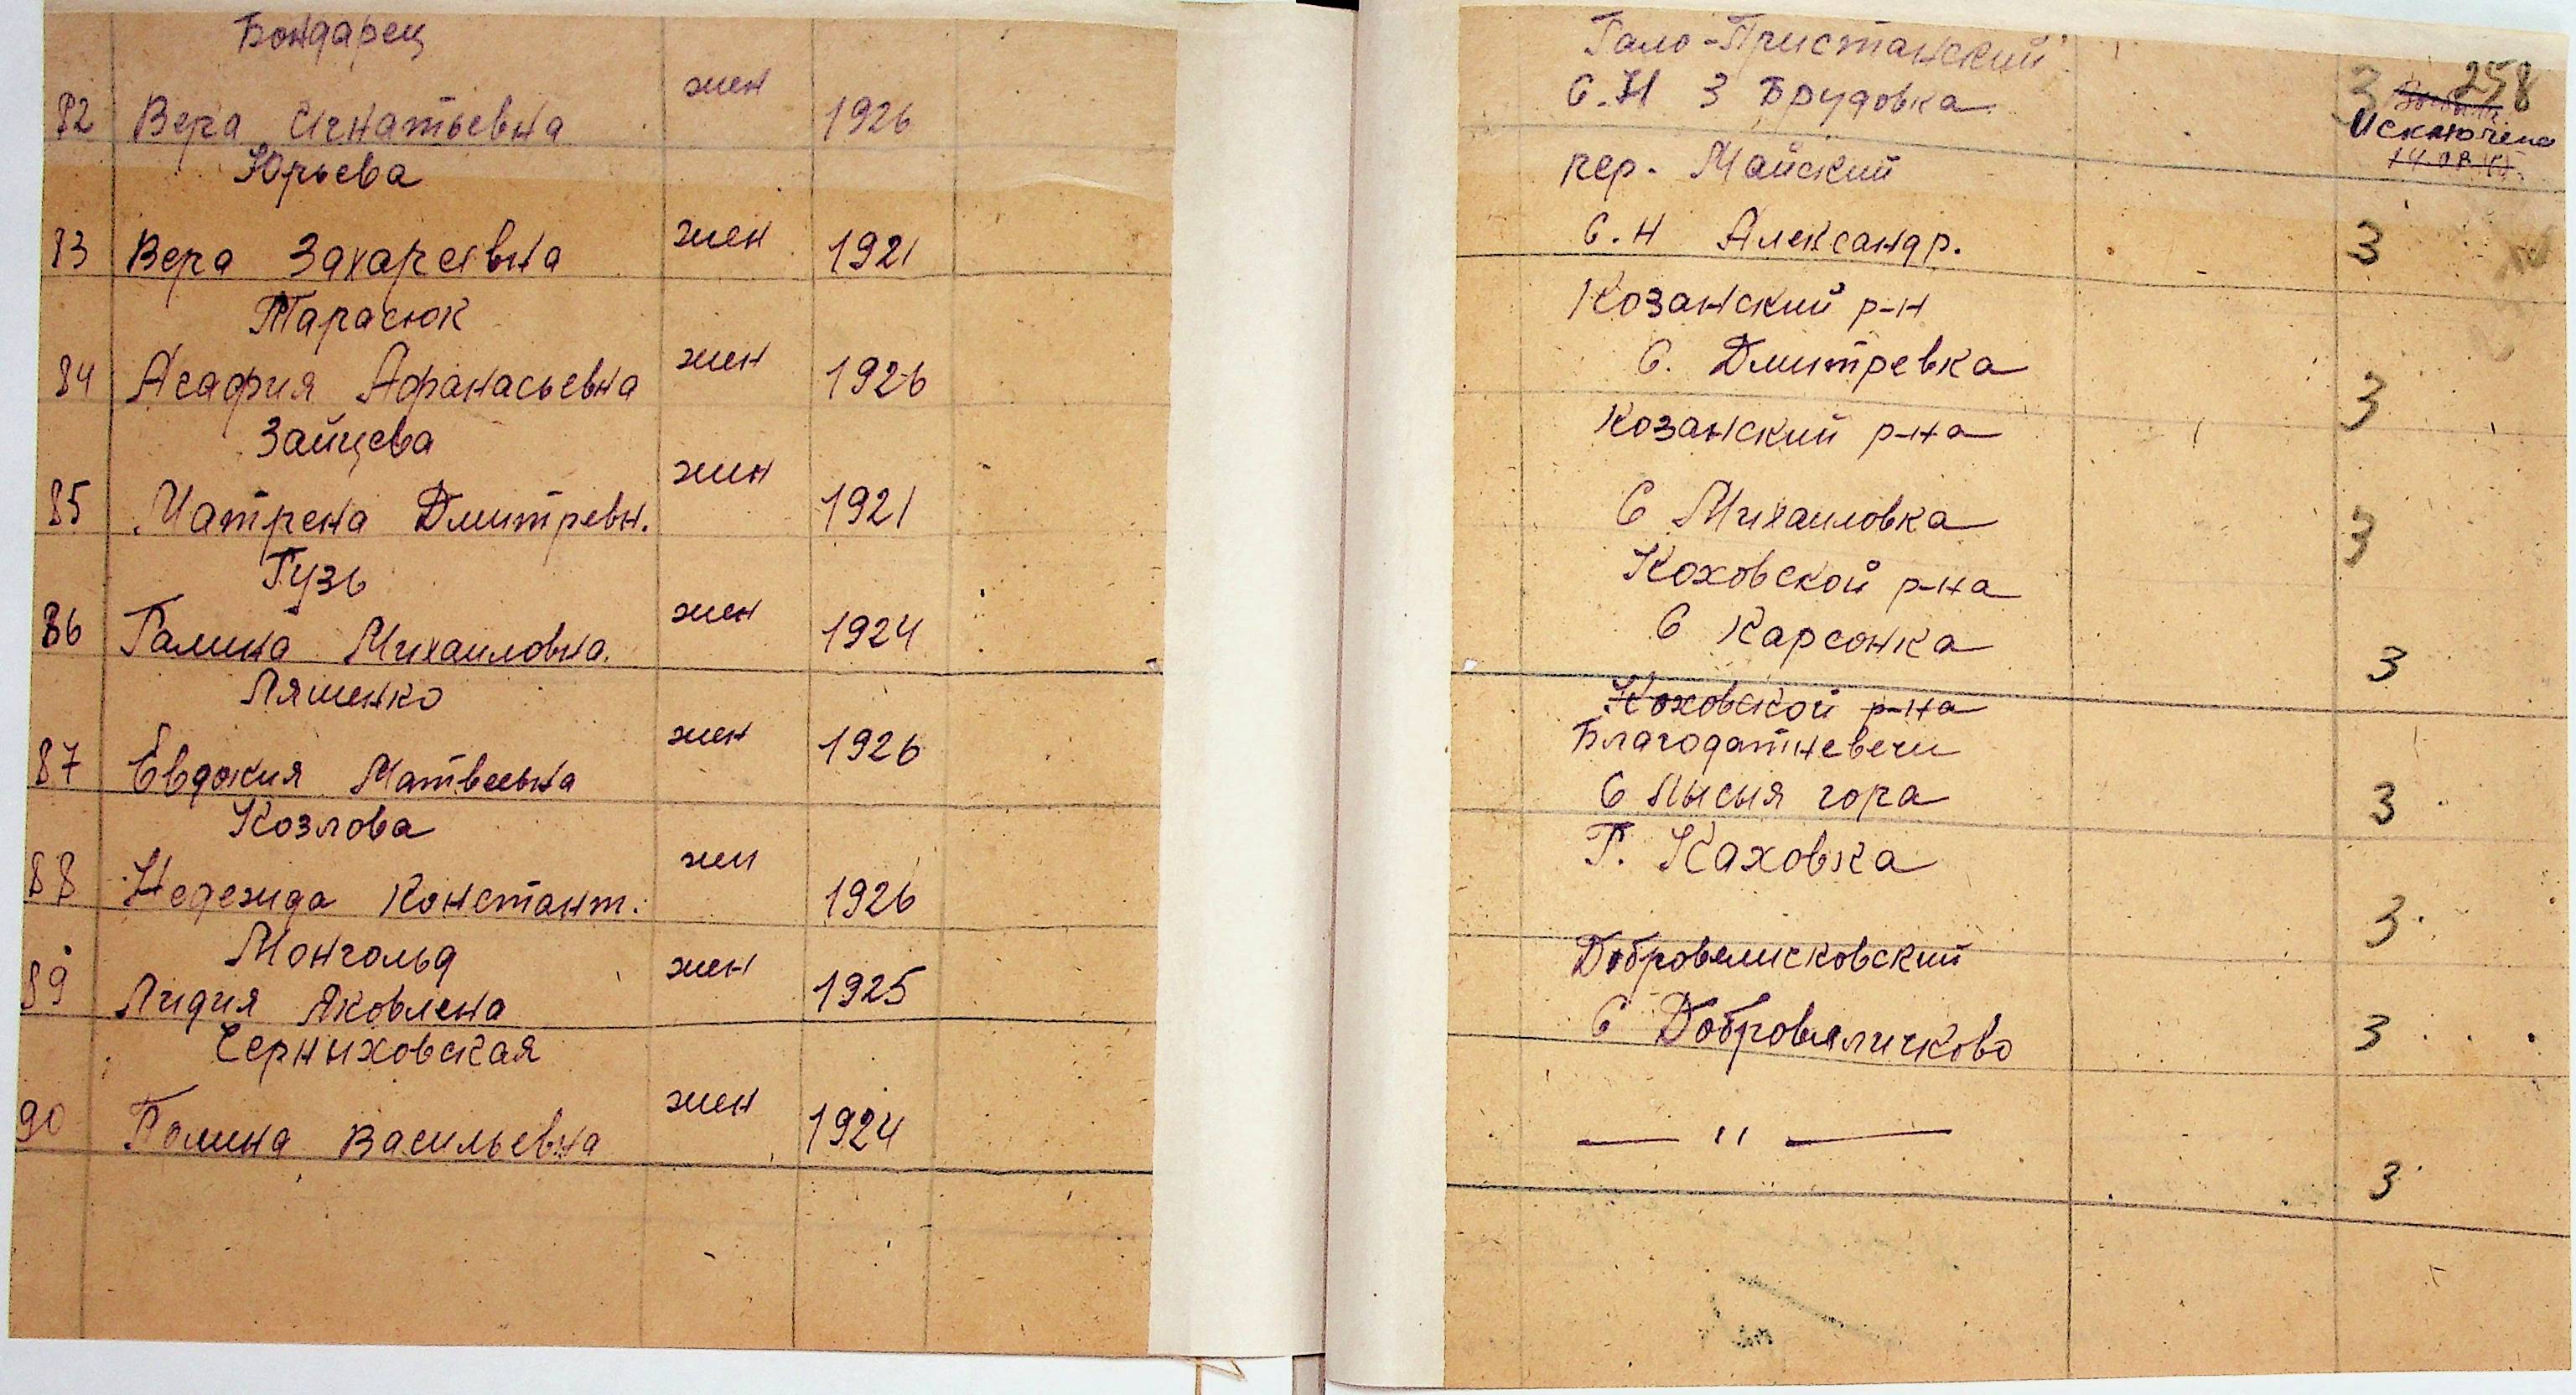 Бондарец
82 Вера Игнатьевна жен 1926
Юрьева
83 Вера Захаревна жен 1921
Тарасюк
84 Агафия Афанасьевна жен 1926
Зайцева
85 Матрена Дмитревн. жен 1921
Гузь
86 Галина Михаиловна. жен 1924
Ляшенко
87 Евдокия Матвеевна жен 1926
Козлова
88 Недежида Констант. жен 1926
Монгольд
89 Лидия Яковлена жен 1925
Черныховская
90 Полина Васильевна жен 1924
Гало-Пристанский
258
С.Н 3 Брудовка 3
Исключена
пер. Майский
С.Н Александр. 3
Козанский р-н
С. Дмитревка 3
Козанский р-на
С Михаиловка 3
Коховской р-на
С Карсонка 3
Коховской р-на
Благодатневечи
С Лысыя гора 3
Г. Каховка
3
Добровелисковский
С Добровяличково 3
— " —
3